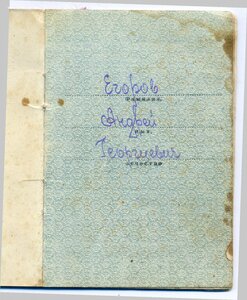 Егоров
Фамилия
Андрей
имя
Георгиевич
отчество